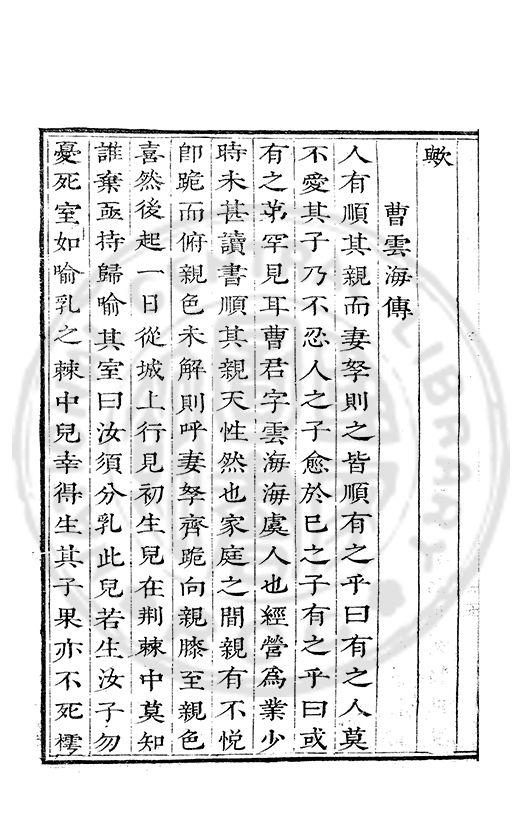 歟
曹雲海傳
人有順其親而妻孥則之皆順有之乎曰有之人莫
不愛其子乃不忍人之子愈於已之子有之乎曰或
有之苐罕見耳曹君字雲海海虞人也經營爲業少
時未甚讀書順其親天性然也家庭之間親有不悅
卽跪而俯親色未解則呼妻孥齊跪向親膝至親色
喜然後起一日從城上行見初生兒在荆棘中莫知
誰棄亟持歸喻其室曰汝須分乳此兒若生汝子勿
憂死室如喻乳之棘中兒幸得生其子果亦不死㯶